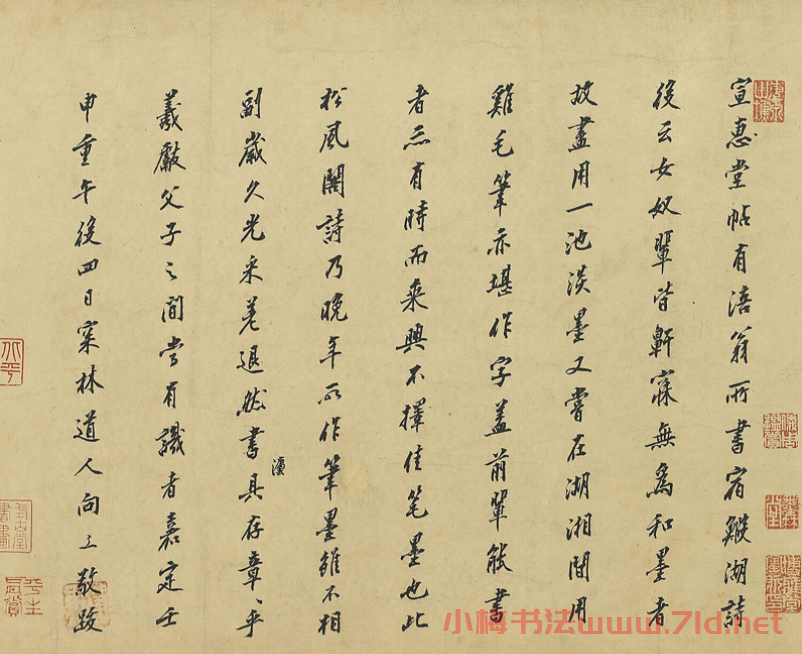 宣惠堂帖有涪翁所書宿鰕湖詩
後云女奴輩皆鼾寐無為和墨者
故盡用一池淡墨又嘗在湖湘間用
雞毛筆亦堪作字蓋前輩能書
者亦有時而乘興不擇佳笔墨也此
松風閣詩乃晚年所作筆墨雖不相
副歲久光采差退然書具存章〻乎
羲獻父子之間當有識者嘉定壬
申重午後四日寀林道人向敬跋
小梅书法www.7ld.net